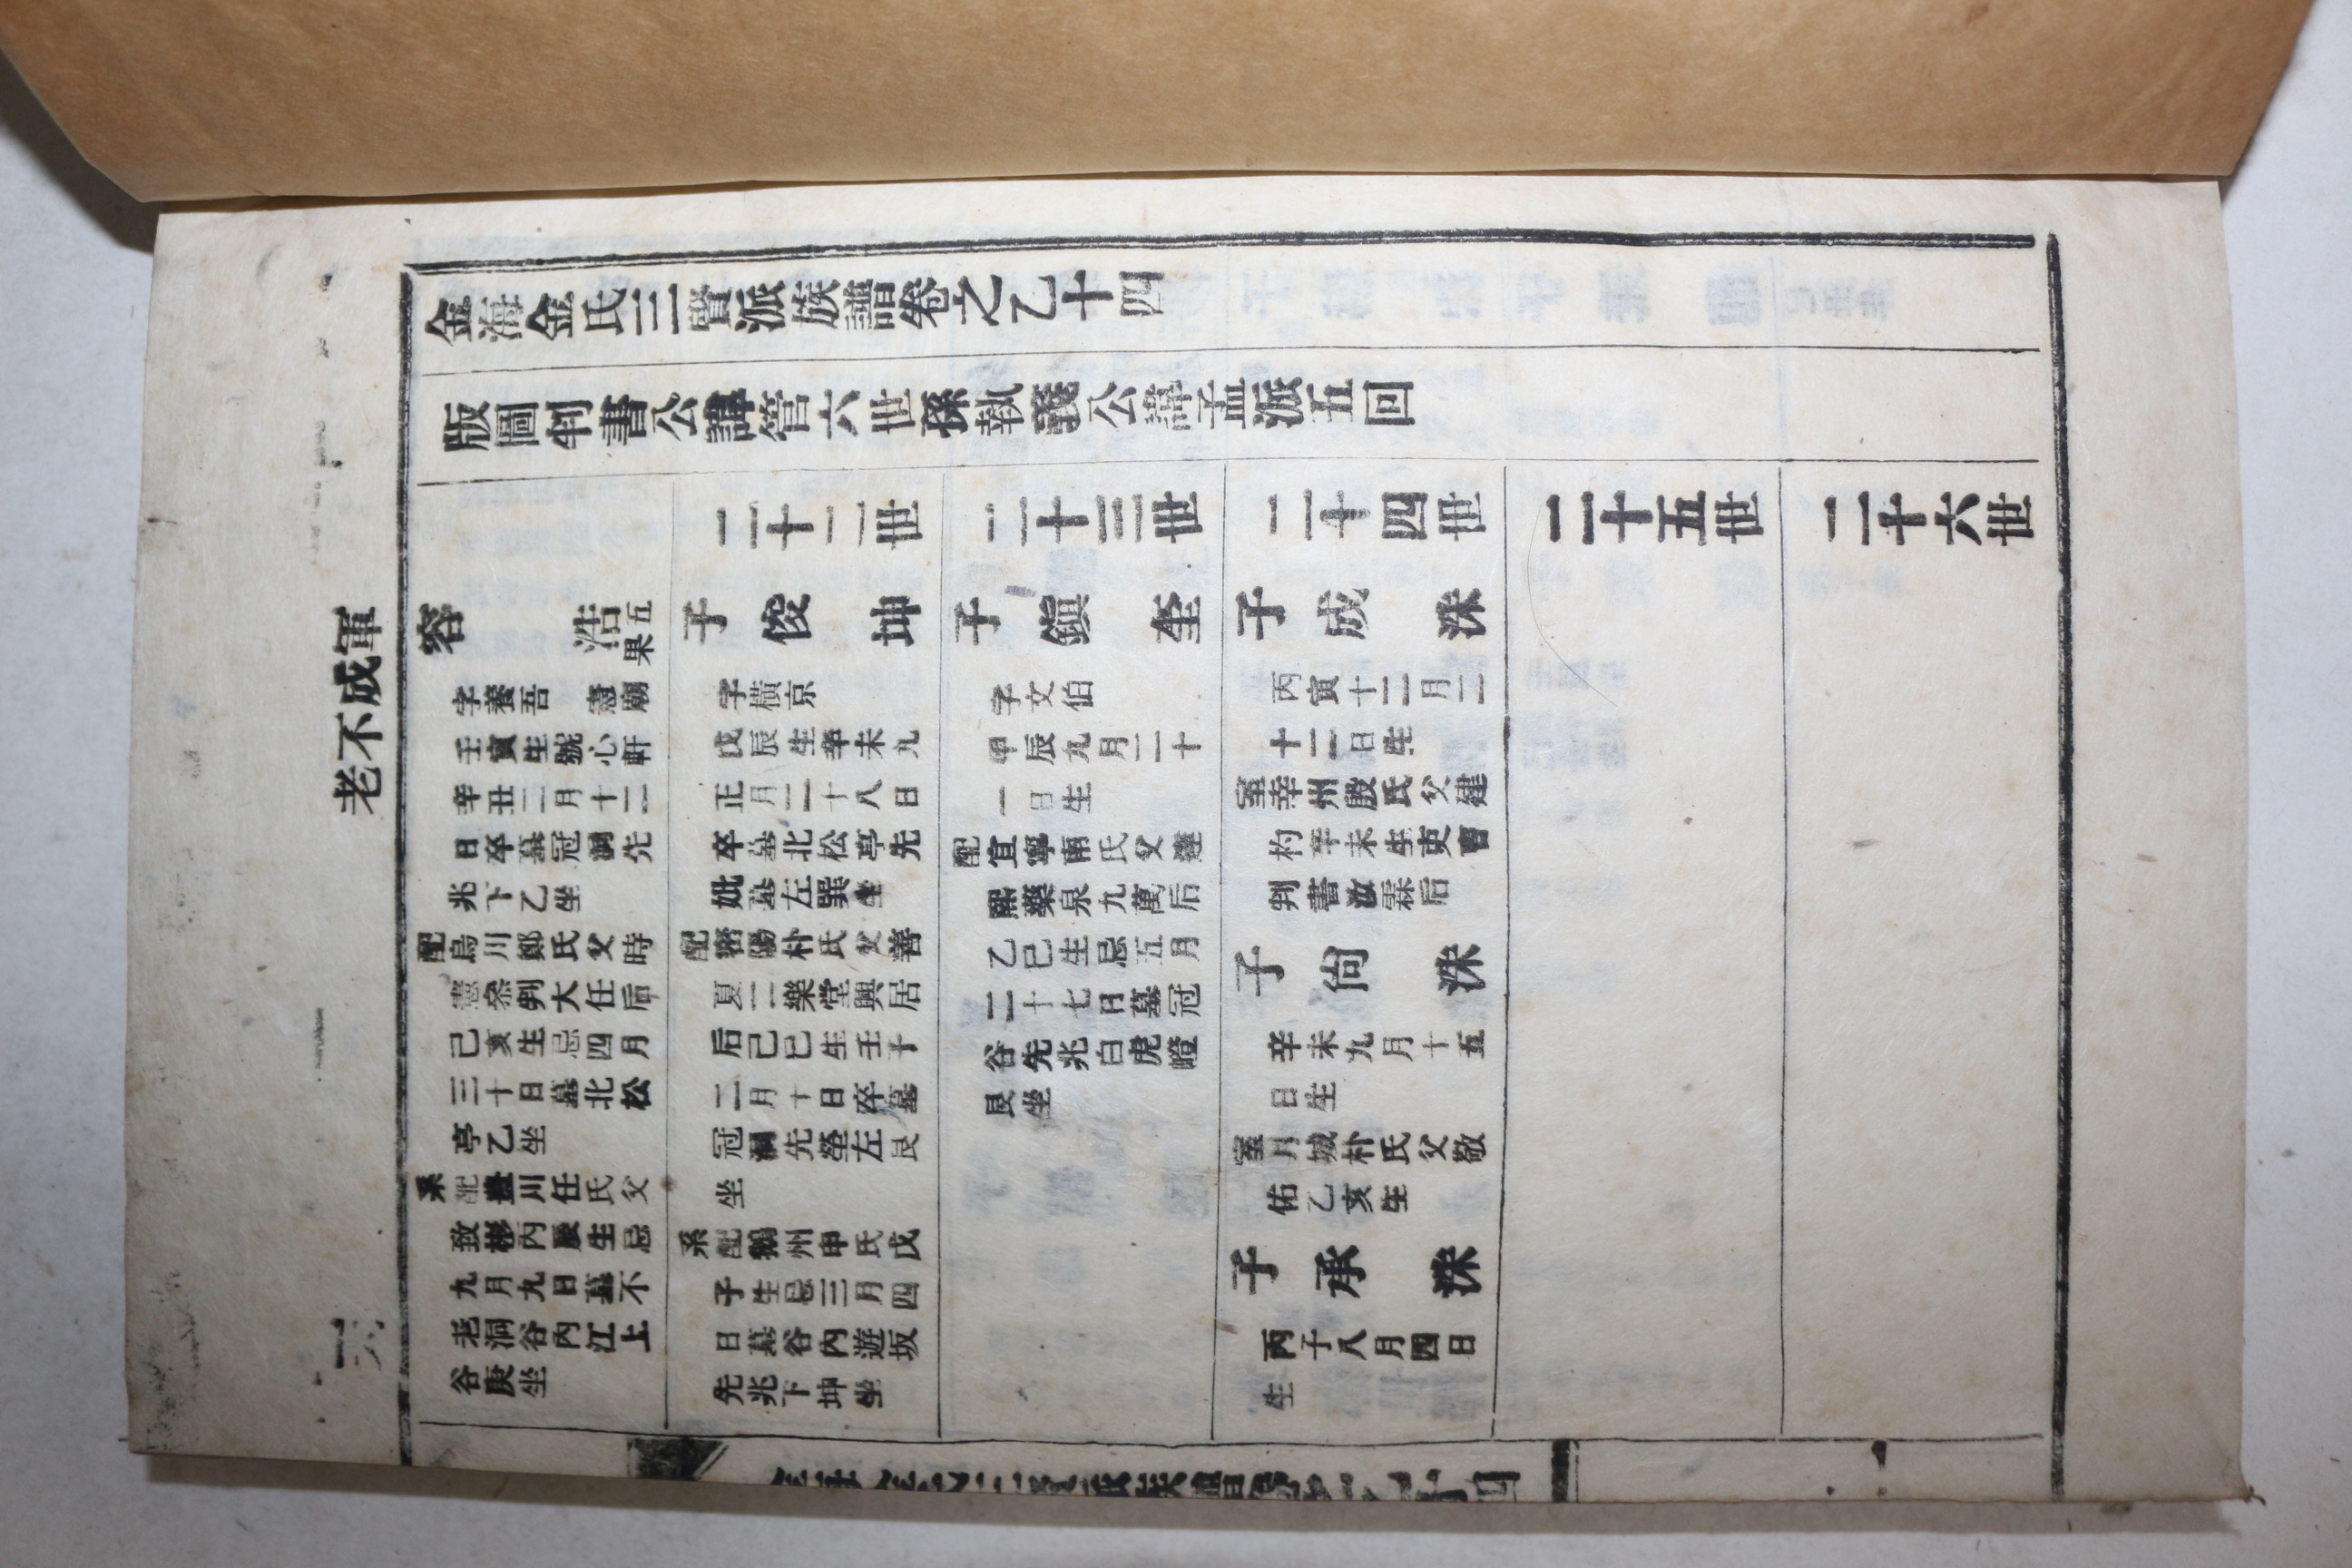 金海金氏三賢派族譜卷之乙十四
版圖判書公諱管六世孫執義公諱孟派五回
軍成不老
容浩五果
字養吾憲廟
壬寅生號心軒
辛丑二月十二
日卒墓冠洞先
兆下乙坐
配烏川鄭氏父時
憲參判大任后
己亥生忌四月
三十日墓北松
亭乙坐
系配豊川任氏父
致彬丙辰生忌
九月九日墓不
老洞谷內江上
谷庚坐
二十二世
子俊坤
字橫京
戊辰生辛未九
正月二十八日
卒墓北松亭先
妣墓左巽坐
配密陽朴氏父善
夏二樂堂興居
后己巳生壬子
二月十日卒墓
冠洞先塋左艮
坐
系配鵝州申氏戊
子生忌三月四
日墓谷內遊坂
先兆下坤坐
二十三世
子鎭奎
字文伯
甲辰九月二十
一日生
配宜寧南氏父達
熙藥泉九萬后
乙巳生忌五月
二十七日墓冠
谷先兆白虎嶝
艮坐
二十四世
子成洙
丙寅十二月二
十二日生
室幸州殷氏父建
杓辛未生吏曹
判書汝霖后
子尙洙
辛未九月十五
日生
室月城朴氏父敬
佑乙亥生
子承洙
丙子八月四日
生
二十五世
二十六世